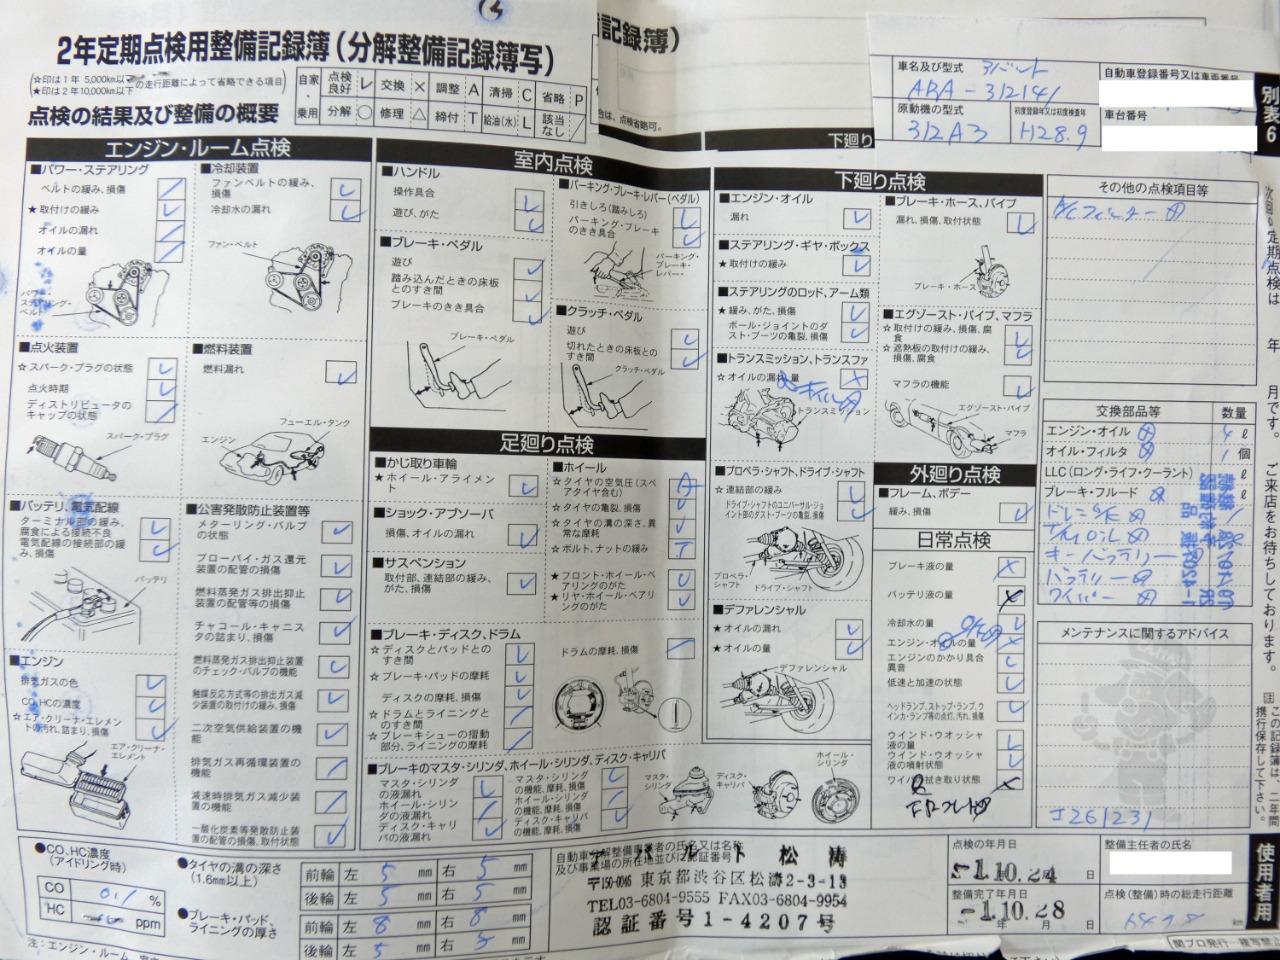 2年定期点検用整備記録簿(分解整備記録簿写)
記録簿)
点検の結果及び整備の概要
自家・乗用
点検良好 レ 交換 × 調整 A 清掃 C 省略 P
分解 ○ 修理 △ 締付 T 給油(水) L 該当なし /
車名及び型式
アバルト
ABA-312141
原動機の型式
312A3
初度登録年又は初度検査年
H28.9
自動車登録番号又は車両番号
車台番号
別表6
エンジン・ルーム点検
■パワー・ステアリング
ベルトの緩み、損傷
★取付けの緩み
オイルの漏れ
オイルの量
パワー・ステアリング・ベルト
■冷却装置
ファンベルトの緩み、損傷
冷却水の漏れ
ファン・ベルト
■点火装置
☆スパーク・プラグの状態
点火時期
ディストリビュータのキャップの状態
スパーク・プラグ
■燃料装置
燃料漏れ
フューエル・タンク
エンジン
■バッテリ、電気配線
ターミナル部の緩み、腐食による接続不良
電気配線の接続部の緩み、損傷
バッテリ
■エンジン
排気ガスの色
CO、HCの濃度
☆エア・クリーナ・エレメントの汚れ、詰まり、損傷
エア・クリーナ・エレメント
■公害発散防止装置等
メターリング・バルブの状態
ブローバイ・ガス還元装置の配管の損傷
燃料蒸発ガス排出抑止装置の配管等の損傷
チャコール・キャニスタの詰まり、損傷
燃料蒸発ガス排出抑止装置のチェック・バルブの機能
触媒反応方式等の排出ガス減少装置の取付けの緩み、損傷
二次空気供給装置の機能
排気ガス再循環装置の機能
減速時排気ガス減少装置の機能
一酸化炭素等発散防止装置の配管の損傷、取付状態
室内点検
■ハンドル
操作具合
遊び、がた
■ブレーキ・ペダル
遊び
踏み込んだときの床板とのすき間
ブレーキのきき具合
ブレーキ・ペダル
■パーキング・ブレーキ・レバー(ペダル)
引きしろ(踏みしろ)
パーキング・ブレーキのきき具合
パーキング・ブレーキ・レバー
■クラッチ・ペダル
遊び
切れたときの床板とのすき間
クラッチ・ペダル
足廻り点検
■かじ取り車輪
★ホイール・アライメント
■ショック・アブソーバ
損傷、オイルの漏れ
■サスペンション
取付部、連結部の緩み、損傷
■ホイール
☆タイヤの空気圧(スペアタイヤ含む)
☆タイヤの亀裂、損傷
☆タイヤの溝の深さ、異常な摩耗
☆ボルト、ナットの緩み
★フロント・ホイール・ベアリングのがた
★リヤ・ホイール・ベアリングのがた
■ブレーキ・ディスク、ドラム
☆ディスクとパッドとのすき間
☆ブレーキ・パッドの摩耗
ディスクの摩耗、損傷
☆ドラムとライニングとのすき間
☆ブレーキシューの摺動部分、ライニングの摩耗
ドラムの摩耗、損傷
■ブレーキのマスタ・シリンダ、ホイール・シリンダ、ディスク・キャリパ
マスタ・シリンダの液漏れ
ホイール・シリンダの液漏れ
ディスク・キャリパの液漏れ
マスタ・シリンダの機能、摩耗、損傷
ホイール・シリンダの機能、摩耗、損傷
ディスク・キャリパの機能、摩耗、損傷
マスタ・シリンダ
ディスク・キャリパ
ホイール・シリンダ
下廻り点検
■エンジン・オイル
漏れ
■ステアリング・ギヤ・ボックス
★取付けの緩み
■ステアリングのロッド、アーム類
★緩み、がた、損傷
ボール・ジョイントのダスト・ブーツの亀裂、損傷
■トランスミッション、トランスファ
☆オイルの漏れ、量
トランスミッション
■プロペラ・シャフト、ドライブ・シャフト
☆連結部の緩み
ドライブ・シャフトのユニバーサル・ジョイント部のダスト・ブーツの亀裂、損傷
プロペラ・シャフト
ドライブ・シャフト
■デファレンシャル
★オイルの漏れ
★オイルの量
デファレンシャル
■ブレーキ・ホース、パイプ
漏れ、損傷、取付状態
ブレーキ・ホース
■エグゾースト・パイプ、マフラ
☆取付けの緩み、損傷、腐食
☆遮熱板の取付けの緩み、損傷、腐食
マフラの機能
エグゾースト・パイプ
マフラ
外廻り点検
■フレーム、ボデー
緩み、損傷
日常点検
ブレーキ液の量
バッテリ液の量
冷却水の量
エンジン・オイルの量
エンジンのかかり具合異音
低速と加速の状態
ヘッドランプ、ストップ・ランプ、ウインカ・ランプ等の点灯、汚れ、損傷
ウインド・ウオッシャ液の量
ウインド・ウオッシャ液の噴射状態
ワイパの拭き取り状態
その他の点検項目等
交換部品等 数量
エンジン・オイル 4 ℓ
オイル・フィルタ 1 個
LLC(ロング・ライフ・クーラント) ℓ
ブレーキ・フルード ℓ
キーバッテリー
バッテリー
ワイパー
メンテナンスに関するアドバイス
I261231
使用者用
●CO、HC濃度(アイドリング時)
CO 0.1 %
HC ppm
●タイヤの溝の深さ(1.6mm以上)
前輪 左 5 mm 右 5 mm
後輪 左 5 mm 右 5 mm
●ブレーキ・パッド、ライニングの厚さ
前輪 左 8 mm 右 8 mm
後輪 左 5 mm 右 5 mm
アバルト松濤
〒150-0046 東京都渋谷区松濤2-3-13
TEL03-6804-9555 FAX03-6804-9954
認証番号1-4207号
点検の年月日
-1.10.24 日
整備完了年月日
-1.10.28
年 月 日
整備主任者の氏名
点検(整備)時の総走行距離
km